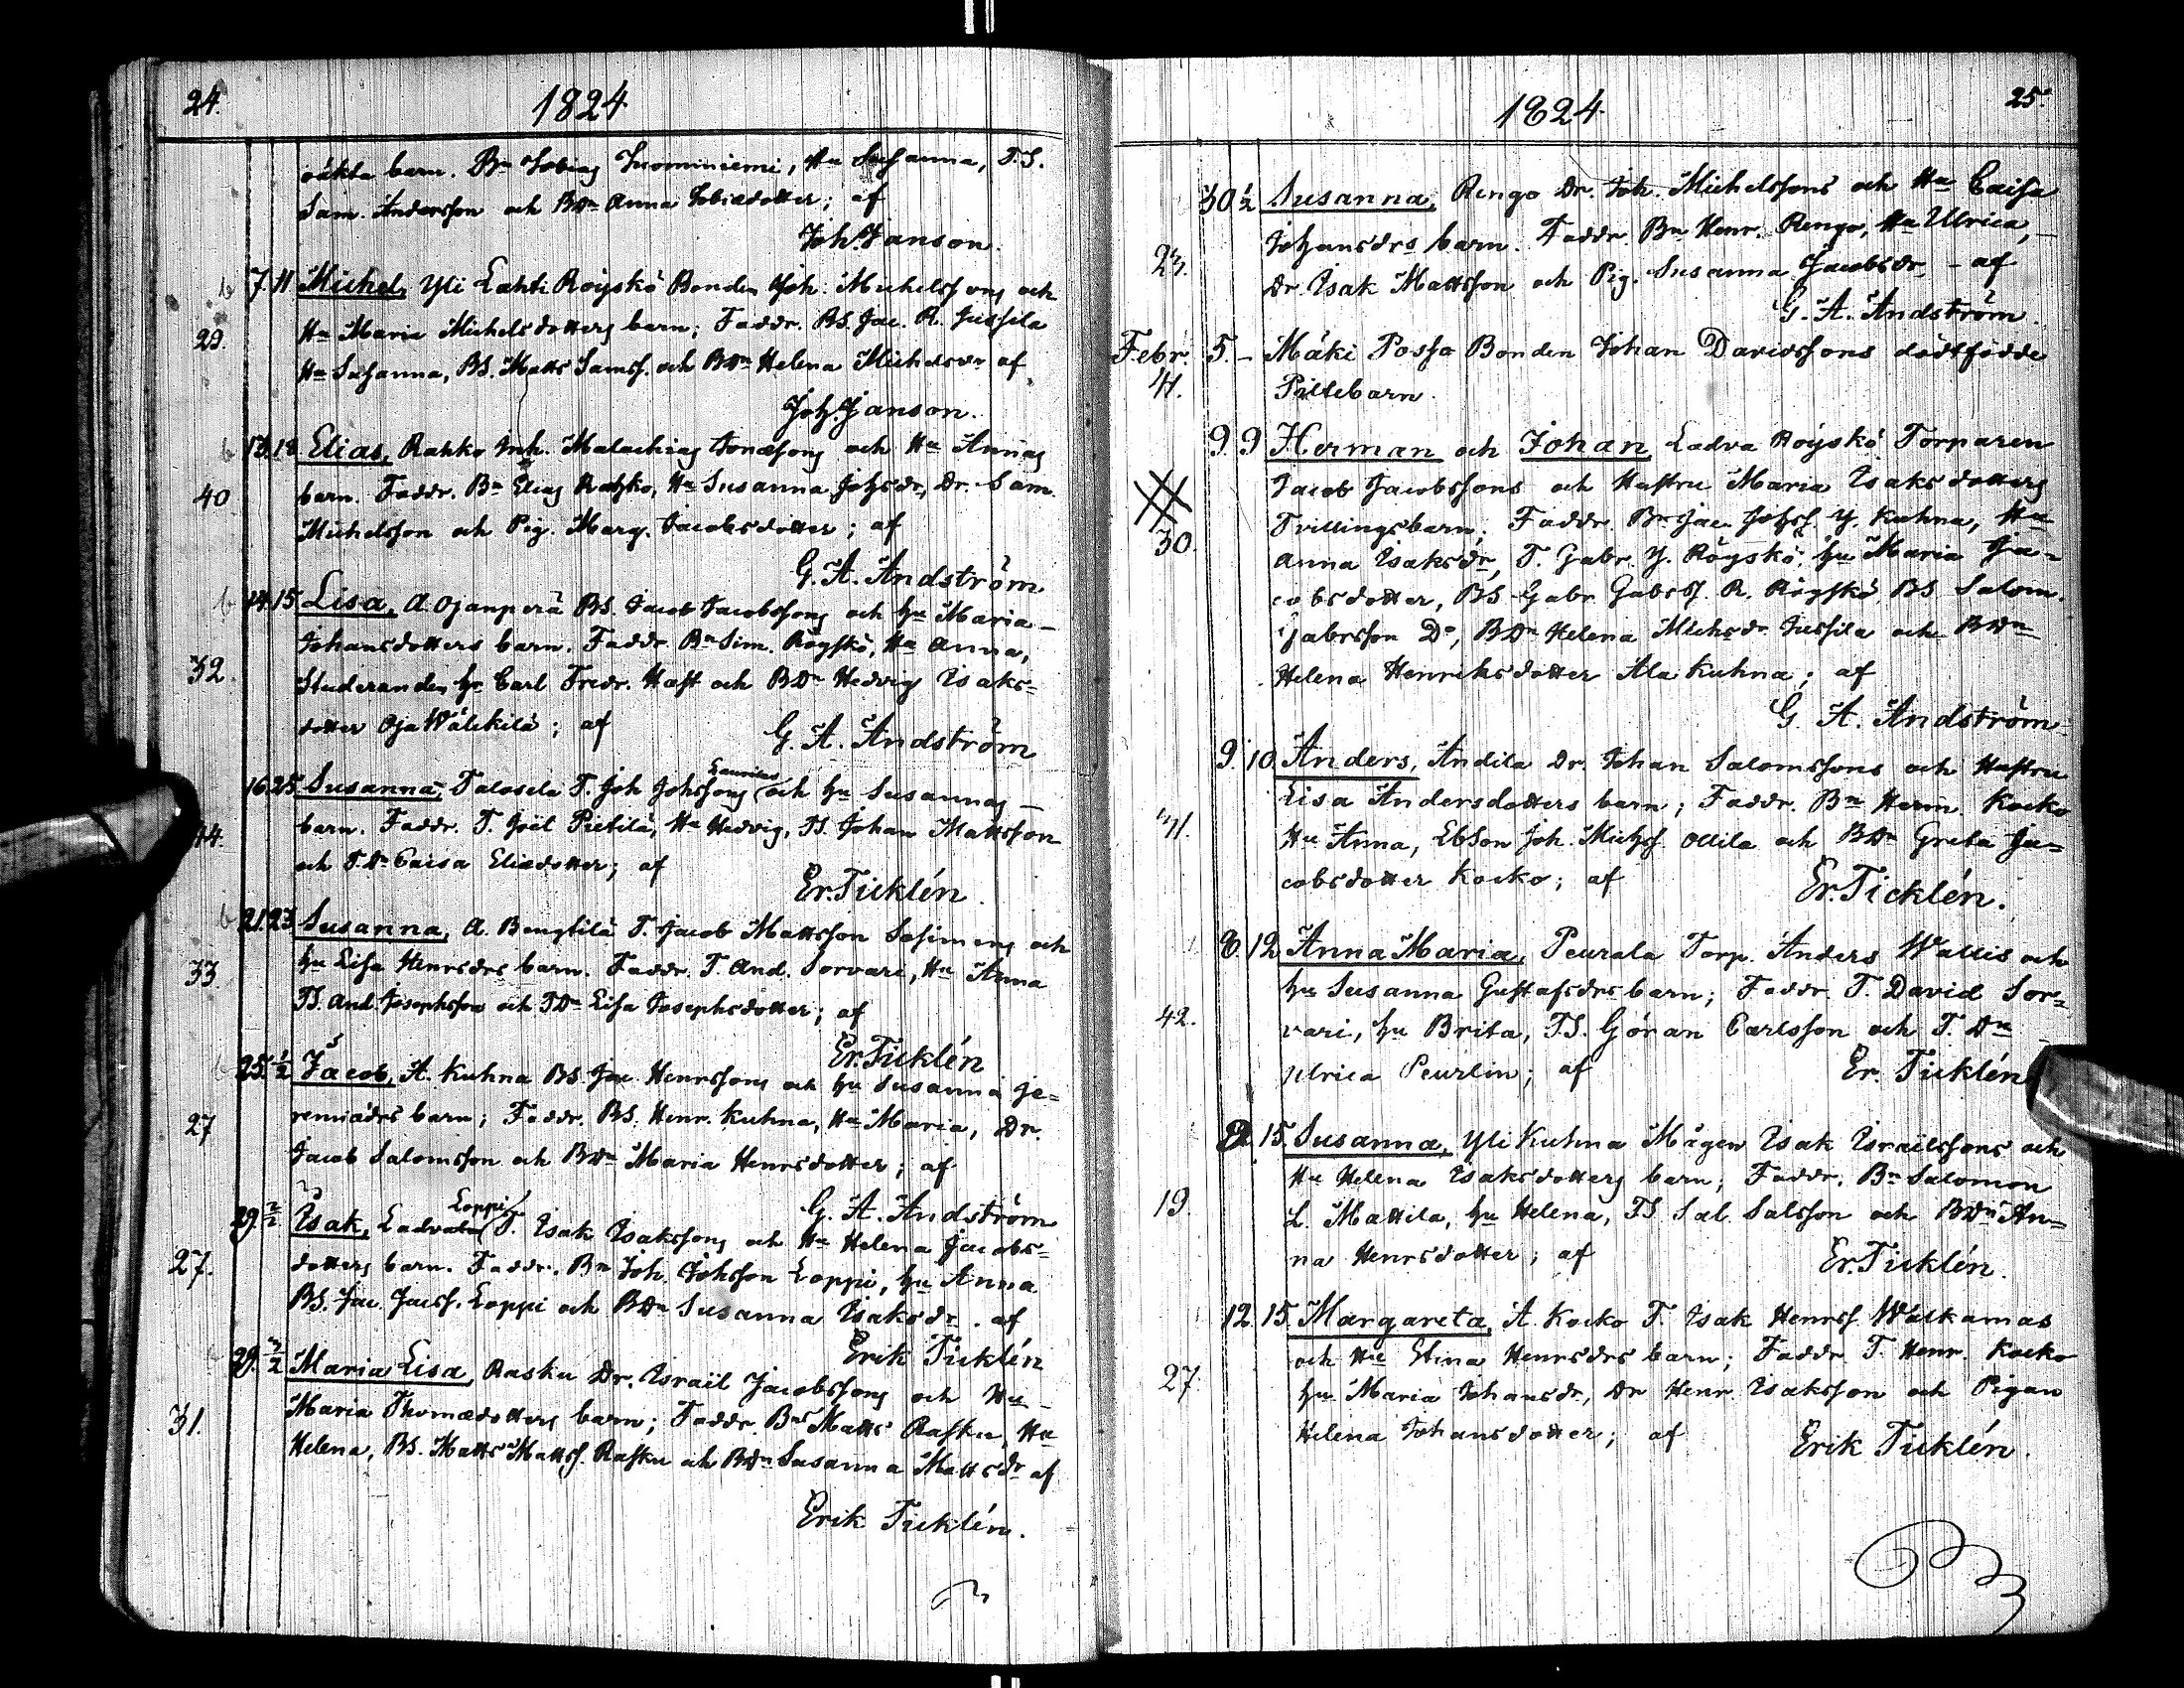 24.
1824
oäkta barn. Bn Tobias Tuominiemi, Hu Susanna, T.S.
Sam. Andersson och BDn Anna Tobiædotter; af
Joh. Janson.
7. 11 Michel, Yli Lahti Röyskö Bonden Joh. Michelssons och
29. Hu Maria Michelsdotters barn; Faddr. BS. Jac. R. Jussila
Hu Susanna, BS. Matts Samss. och BDn Helena Michelsdr af
Joh. Janson.
13. 18 Elias, Rahko Inh. Malachias Jonæsons och Hu Annas
40 barn. Faddr. Bn Elias Rahko, Hu Susanna Johsdr, Dr. Sam
Michelsson och Pig. Marg. Jacobsdotter; af
G. A. Andström
14. 15 Lisa, A. Ojanperä BS. Jacob Jacobssons och hu Maria
Johansdotters barn. Faddr. Bn Sim. Röyskö, Hu Anna,
32. Studeranden hr Carl Fredr. Hast och BDn Hedvig Isaks-
dotter Oja Wälikilä; af
G. A. Andström
16. 25 Susanna, Talosela T. Joh Johssons Laurilas och hu Susannas
44. barn. Faddr. T. Joël Pietilä, Hu Hedvig, TS. Johan Mattsson
och T.Dr Caisa Eliædotter; af
Er. Ticklén.
21. 23 Susanna, A. Bengtilä T. Jacob Mattsson Sasimens och
33. hu Lisa Henrsdrs barn. Faddr. T. And. Sorvari, Hu Anna
TS. And. Josephsson och TDr Lisa Josephsdotter; af
Er. Ticklén
25. 1/2 Jacob, A. Kuhna BS. Jac. Henrssons och hu Susanna Je-
27 remiædrs barn; Faddr. BS. Henr. Kuhna, Hu Maria, Dr.
Jacob Salomsson och BDr Maria Henrsdotter; af
G. A. Andström
29. 2/2 Isak, Ladvala Loppi T. Isak Isakssons och Hu Helena Jacobs-
27. dotters barn. Faddr. Bn Joh. Johsson Loppi, hu Anna
BS. Jac. Jacss. Loppi och BDr Susanna Isaksdr. af
Erik Ticklén
29. 3/2 Maria Lisa, Rasku Dr. Israël Jacobssons och Hu
31. Maria Thomædotters barn; Faddr. Bn Matts Rasku, Hu
Helena, BS. Matts Mattss. Rasku och BDr Susanna Mattsdr af
Erik Ticklén.
1824
25.
30. 1/2 Susanna, Rengo Dr. Joh. Michelssons och Hu Caisa
23. Johansdrs barn. Faddr. Bn Henr. Rengo, Hu Ulrica,
Dr. Isak Mattsson och Pig. Susanna Jacobsdr, af
G. A. Andström.
Febr. 5. – Mäki Posso Bonden Johan Davidssons dödfödde
41. Piltebarn.
9. 9 Herman och Johan, Ladva Röyskö Torparen
Jacob Jacobssons och Hustru Maria Isaksdotters
30. Tvillingsbarn; Faddr. Bn Jac. Johss. Y. Kuhna, Hu
Anna Isaksdr, T. Gabr. Y. Röyskö, hu Maria Ja-
cobsdotter, BS. Gabr. Gabrss. R. Röyskö, BS Salom.
Gabrsson Do, BDr Helena Michsdr Jussila och BDr
Helena Henriksdotter Ala Kuhna; af
G. A. Andström
9. 10 Anders, Andila Dr. Johan Salomssons och Hustru
41. Lisa Andersdotters barn; Faddr. Bn Herm. Kocko
Hu Anna, EbSon Joh. Michss. Ollila och BDr Greta Ja-
cobsdotter Kocko; af
Er. Ticklén.
8. 12 Anna Maria, Peurala Torp. Anders Wallis och
hu Susanna Gustafsdrs barn; Faddr. T. David Sor-
42. vari, hu Brita, TS. Göran Carlsson och T. Dr
Ulrica Peurlin; af
Er. Ticklén
15. Susanna, Yli Kuhna Mågen Isak Israëlssons och
Hu Helena Isaksdotters barn; Faddr. Bn Salomon
19. L. Mattila, hu Helena, TS. Sal. Salsson och BDr An-
na Henrsdotter; af
Er. Ticklén.
12. 15. Margareta, A. Kocko T. Isak Henrss. Walkamas
och Hu Stina Henrsdrs barn; Faddr. T. Henr. Kocko
27. hu Maria Johansdr, Dr Henr. Isaksson och Pigan
Helena Johansdotter; af
Erik Ticklén.